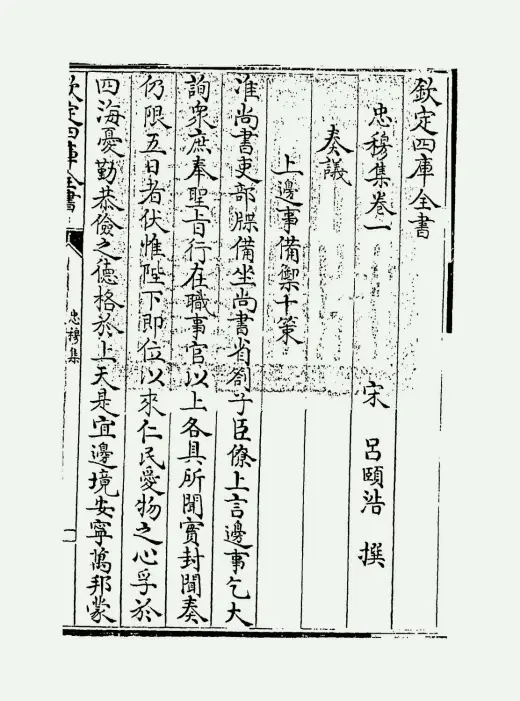 欽定四庫全書
忠穆集卷一
宋 呂頤浩 撰
奏議
上邊事備禦十策
准尚書吏部牒備坐尚書省劄子臣僚上言邊事乞大
詢衆庶奉聖旨行在職事官以上各具所聞實封聞奏
仍限五日者伏惟陛下即位以來仁民愛物之心孚於
四海憂勤恭儉之德格於上天是宜邊境安寧萬邦蒙
欽定四庫全書
忠穆集
一